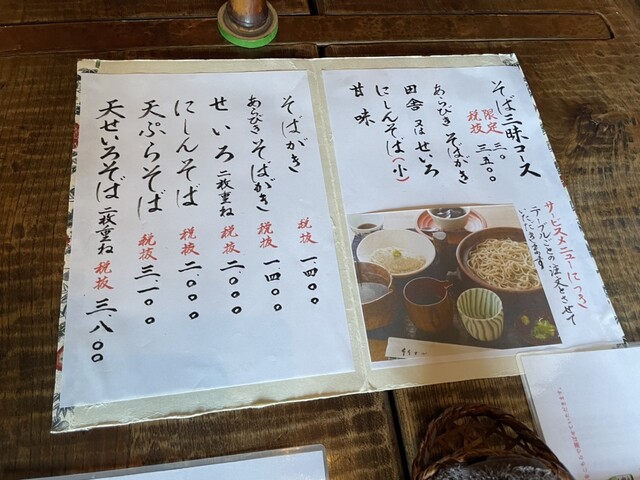 そば三昧コース
限定 三〇
税抜 三五〇〇
あらびき そばがき
田舎 又は せいろ
にしんそば(小)
甘味
サービスメニューにつき
テーブルごとの注文とさせて
いただきます
そばがき 税抜 一.四〇〇
あらびき そばがき 税抜 一四〇〇
せいろ 二枚重ね 税抜 二〇〇〇
にしんそば 税抜 二.〇〇〇
天ぷらそば 税抜 三.一〇〇
天せいろそば 二枚重ね 税抜 三.八〇〇